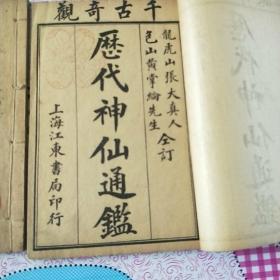 千古奇觀
龍虎山張大真人
包山黃掌綸先生
仝訂
歷代神仙通鑑
上海江東書局印行